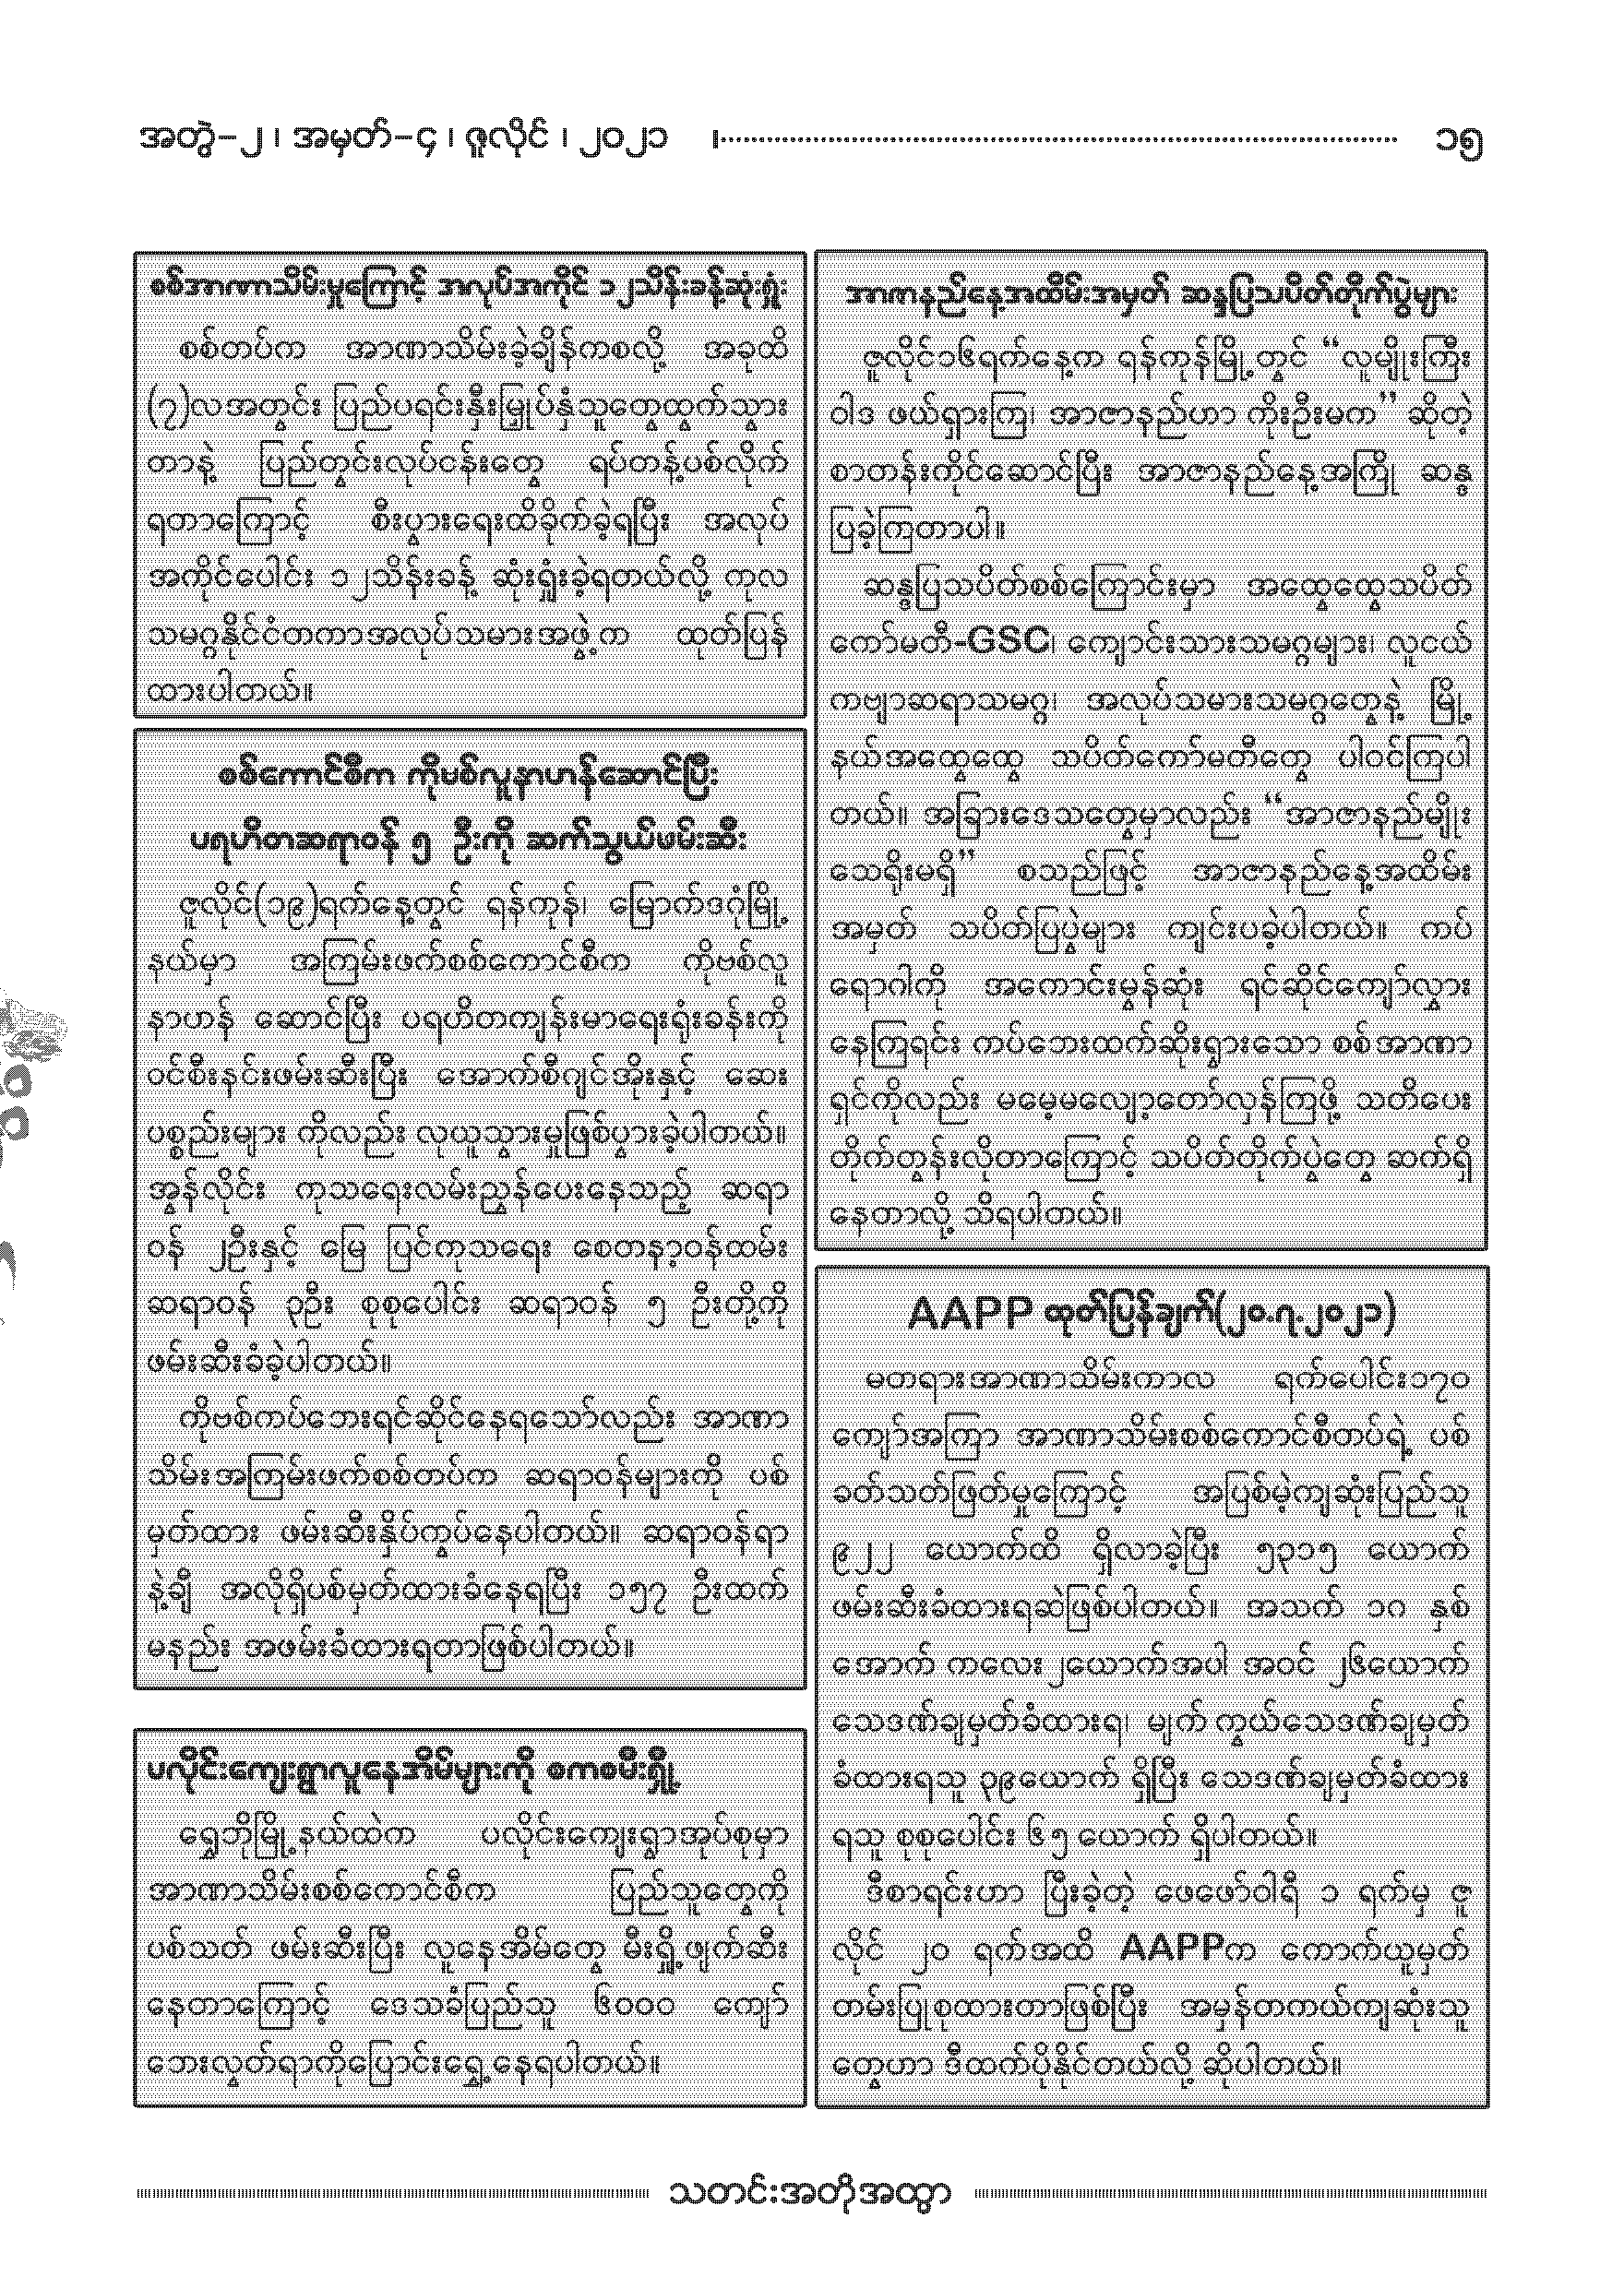 အတွဲ–၂၊ အမှတ်–၄၊ ဇူလိုင်၊ ၂၀၂၁ ၁၅
စစ်အာဏာသိမ်းမှုကြောင့် အလုပ်အကိုင် ၁၂သိန်းခန့်ဆုံးရှုံး
စစ်တပ်က အာဏာသိမ်းခဲ့ချိန်ကစလို့ အခုထိ
(၇)လအတွင်း ပြည်ပရင်းနှီးမြှုပ်နှံသူတွေထွက်သွား
တာနဲ့ ပြည်တွင်းလုပ်ငန်းတွေ ရပ်တန့်ပစ်လိုက်
ရတာကြောင့် စီးပွားရေးထိခိုက်ခဲ့ရပြီး အလုပ်
အကိုင်ပေါင်း ၁၂သိန်းခန့် ဆုံးရှုံးခဲ့ရတယ်လို့ ကုလ
သမဂ္ဂနိုင်ငံတကာအလုပ်သမားအဖွဲ့က ထုတ်ပြန်
ထားပါတယ်။
စစ်ကောင်စီက ကိုဗစ်လူနာဟန်ဆောင်ပြီး
ပရဟိတဆရာဝန် ၅ ဦးကို ဆက်သွယ်ဖမ်းဆီး
ဇူလိုင်(၁၉)ရက်နေ့တွင် ရန်ကုန်၊ မြောက်ဒဂုံမြို့
နယ်မှာ အကြမ်းဖက်စစ်ကောင်စီက ကိုဗစ်လူ
နာဟန် ဆောင်ပြီး ပရဟိတကျန်းမာရေးရုံးခန်းကို
ဝင်စီးနင်းဖမ်းဆီးပြီး အောက်စီဂျင်အိုးနှင့် ဆေး
ပစ္စည်းများ ကိုလည်း လုယူသွားမှုဖြစ်ပွားခဲ့ပါတယ်။
အွန်လိုင်း ကုသရေးလမ်းညွှန်ပေးနေသည့် ဆရာ
ဝန် ၂ဦးနှင့် မြေ ပြင်ကုသရေး စေတနာ့ဝန်ထမ်း
ဆရာဝန် ၃ဦး စုစုပေါင်း ဆရာဝန် ၅ ဦးတို့ကို
ဖမ်းဆီးခံခဲ့ပါတယ်။
ကိုဗစ်ကပ်ဘေးရင်ဆိုင်နေရသော်လည်း အာဏာ
သိမ်းအကြမ်းဖက်စစ်တပ်က ဆရာဝန်များကို ပစ်
မှတ်ထား ဖမ်းဆီးနှိပ်ကွပ်နေပါတယ်။ ဆရာဝန်ရာ
နဲ့ချီ အလိုရှိပစ်မှတ်ထားခံနေရပြီး ၁၅၇ ဦးထက်
မနည်း အဖမ်းခံထားရတာဖြစ်ပါတယ်။
ပလိုင်းကျေးရွာလူနေအိမ်များကို စကစမီးရှို့
ရွှေဘိုမြို့နယ်ထဲက ပလိုင်းကျေးရွာအုပ်စုမှာ
အာဏာသိမ်းစစ်ကောင်စီက ပြည်သူတွေကို
ပစ်သတ် ဖမ်းဆီးပြီး လူနေအိမ်တွေ မီးရှို့ဖျက်ဆီး
နေတာကြောင့် ဒေသခံပြည်သူ ၆၀၀၀ ကျော်
ဘေးလွတ်ရာကိုပြောင်းရွှေ့နေရပါတယ်။
အာဇာနည်နေ့အထိမ်းအမှတ် ဆန္ဒပြသပိတ်တိုက်ပွဲများ
ဇူလိုင်၁၆ရက်နေ့က ရန်ကုန်မြို့တွင် “လူမျိုးကြီး
ဝါဒ ဖယ်ရှားကြ၊ အာဇာနည်ဟာ ကိုးဦးမက” ဆိုတဲ့
စာတန်းကိုင်ဆောင်ပြီး အာဇာနည်နေ့အကြို ဆန္ဒ
ပြခဲ့ကြတာပါ။
ဆန္ဒပြသပိတ်စစ်ကြောင်းမှာ အထွေထွေသပိတ်
ကော်မတီ-GSC၊ ကျောင်းသားသမဂ္ဂများ၊ လူငယ်
ကဗျာဆရာသမဂ္ဂ၊ အလုပ်သမားသမဂ္ဂတွေနဲ့ မြို့
နယ်အထွေထွေ သပိတ်ကော်မတီတွေ ပါဝင်ကြပါ
တယ်။ အခြားဒေသတွေမှာလည်း “အာဇာနည်မျိုး
သေရိုးမရှိ” စသည်ဖြင့် အာဇာနည်နေ့အထိမ်း
အမှတ် သပိတ်ပြပွဲများ ကျင်းပခဲ့ပါတယ်။ ကပ်
ရောဂါကို အကောင်းမွန်ဆုံး ရင်ဆိုင်ကျော်လွှား
နေကြရင်း ကပ်ဘေးထက်ဆိုးရွားသော စစ်အာဏာ
ရှင်ကိုလည်း မမေ့မလျော့တော်လှန်ကြဖို့ သတိပေး
တိုက်တွန်းလိုတာကြောင့် သပိတ်တိုက်ပွဲတွေ ဆက်ရှိ
နေတာလို့ သိရပါတယ်။
AAPP ထုတ်ပြန်ချက်(၂၀.၇.၂၀၂၁)
မတရားအာဏာသိမ်းကာလ ရက်ပေါင်း၁၇၀
ကျော်အကြာ အာဏာသိမ်းစစ်ကောင်စီတပ်ရဲ့ ပစ်
ခတ်သတ်ဖြတ်မှုကြောင့် အပြစ်မဲ့ကျဆုံးပြည်သူ
၉၂၂ ယောက်ထိ ရှိလာခဲ့ပြီး ၅၃၁၅ ယောက်
ဖမ်းဆီးခံထားရဆဲဖြစ်ပါတယ်။ အသက် ၁ဂ နှစ်
အောက် ကလေး၂ယောက်အပါ အဝင် ၂၆ယောက်
သေဒဏ်ချမှတ်ခံထားရ၊ မျက် ကွယ်သေဒဏ်ချမှတ်
ခံထားရသူ ၃၉ယောက် ရှိပြီး သေဒဏ်ချမှတ်ခံထား
ရသူ စုစုပေါင်း ၆၅ ယောက် ရှိပါတယ်။
ဒီစာရင်းဟာ ပြီးခဲ့တဲ့ ဖေဖော်ဝါရီ ၁ ရက်မှ ဇူ
လိုင် ၂၀ ရက်အထိ AAPPက ကောက်ယူမှတ်
တမ်းပြုစုထားတာဖြစ်ပြီး အမှန်တကယ်ကျဆုံးသူ
တွေဟာ ဒီထက်ပိုနိုင်တယ်လို့ ဆိုပါတယ်။
သတင်းအတိုအထွာ